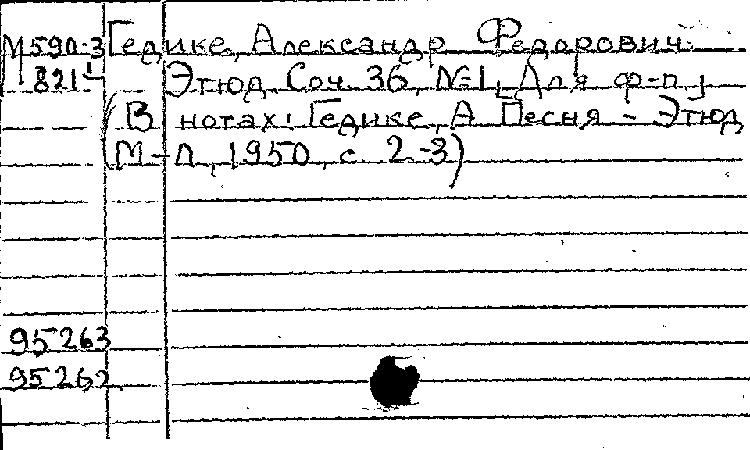 М590-3 Гедике, Александр Федорович.
821 Этюд. Соч. 36, №1. Для ф-п.
(В нотах: Гедике, А. Песня - Этюд
М-Л, 1950, с. 2-3)
95263
95262